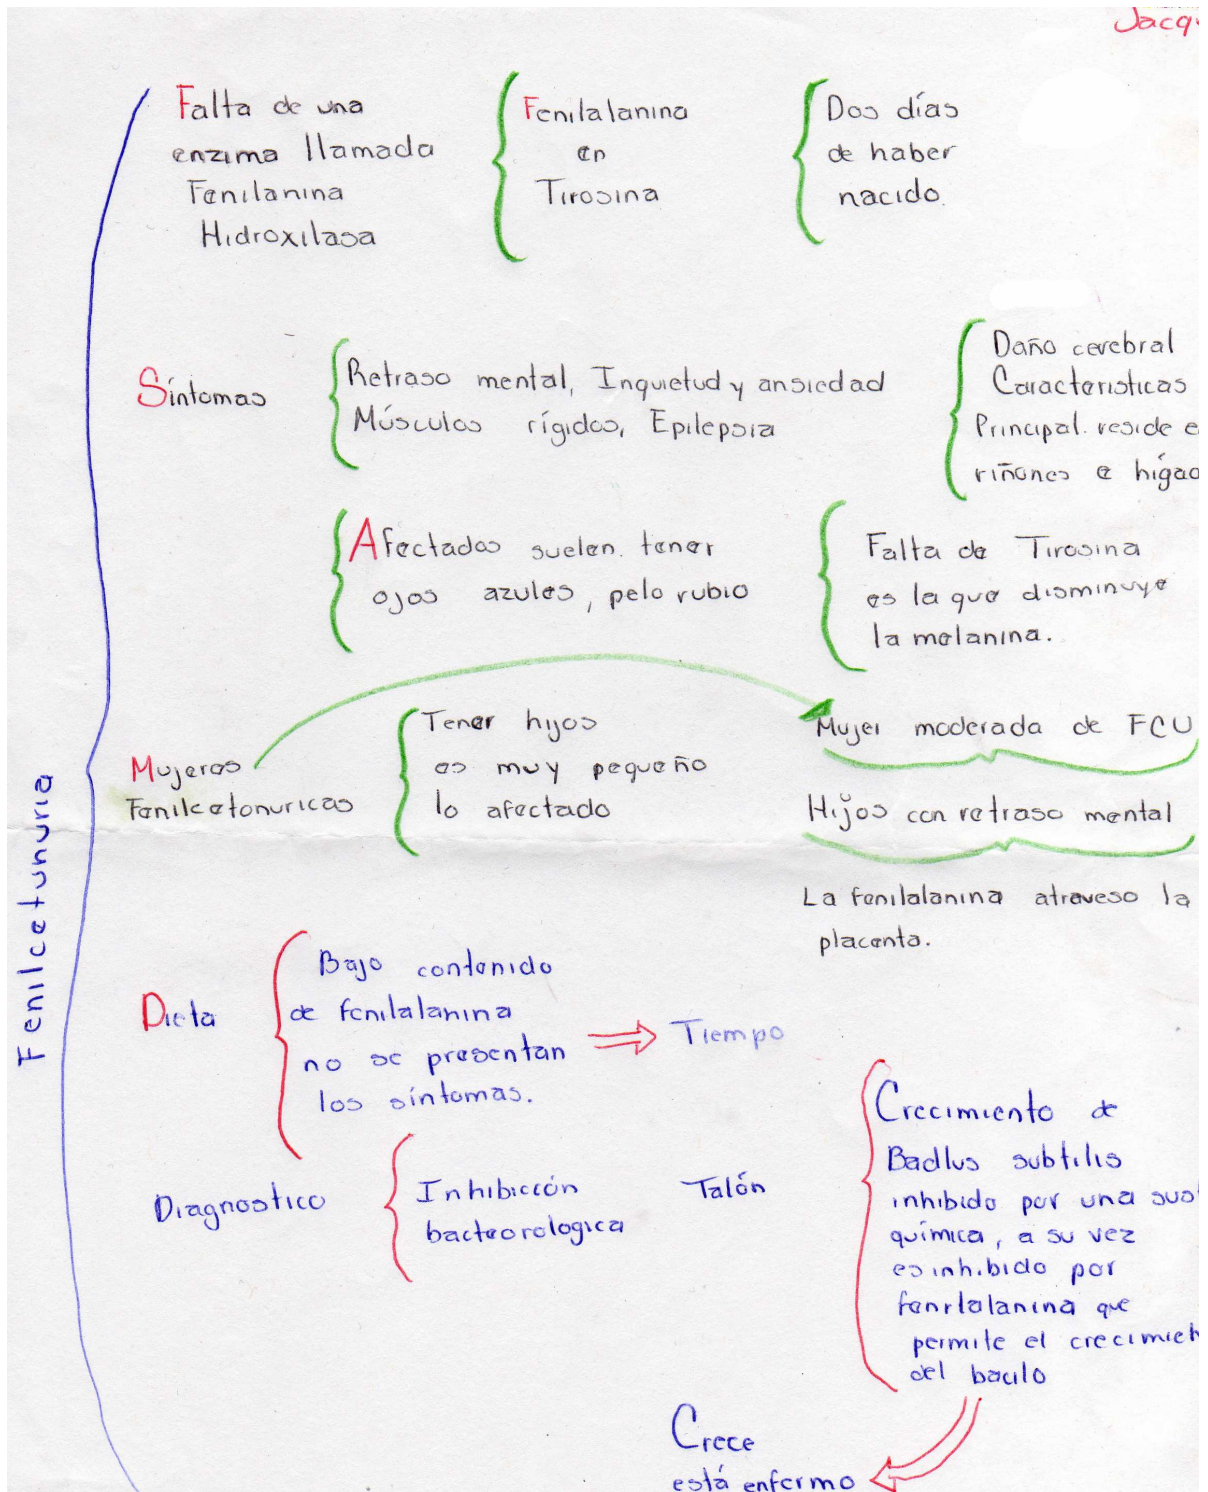 Jacq
Falta de una
enzima llamada
Fenilanina
Hidroxilasa
Fenilalanina
en
Tirosina
Dos días
de haber
nacido.
Síntomas
Retraso mental, Inquietud y ansiedad
Músculos rígidos, Epilepsia
Daño cerebral
Caracteristicas
Principal. reside e
riñones e hígad
Afectados suelen. tener
ojos azules, pelo rubio
Falta de Tirosina
es la que disminuye
la melanina.
Mujeres
Fenilcetonuricas
Tener hijos
es muy pequeño
lo afectado
Mujer moderada de FCU
Hijos con retraso mental
La fenilalanina atraveso la
placenta.
Fenilcetunuria
Dieta
Bajo contenido
de fenilalanina
no se presentan
los síntomas.
Tiempo
Diagnostico
Inhibicción
bacteorologica
Talón
Crecimiento de
Badlus subtilis
inhibido por una sus
química, a su vez
es inhibido por
fenilalanina que
permite el crecimien
del bacilo
Crece
está enfermo